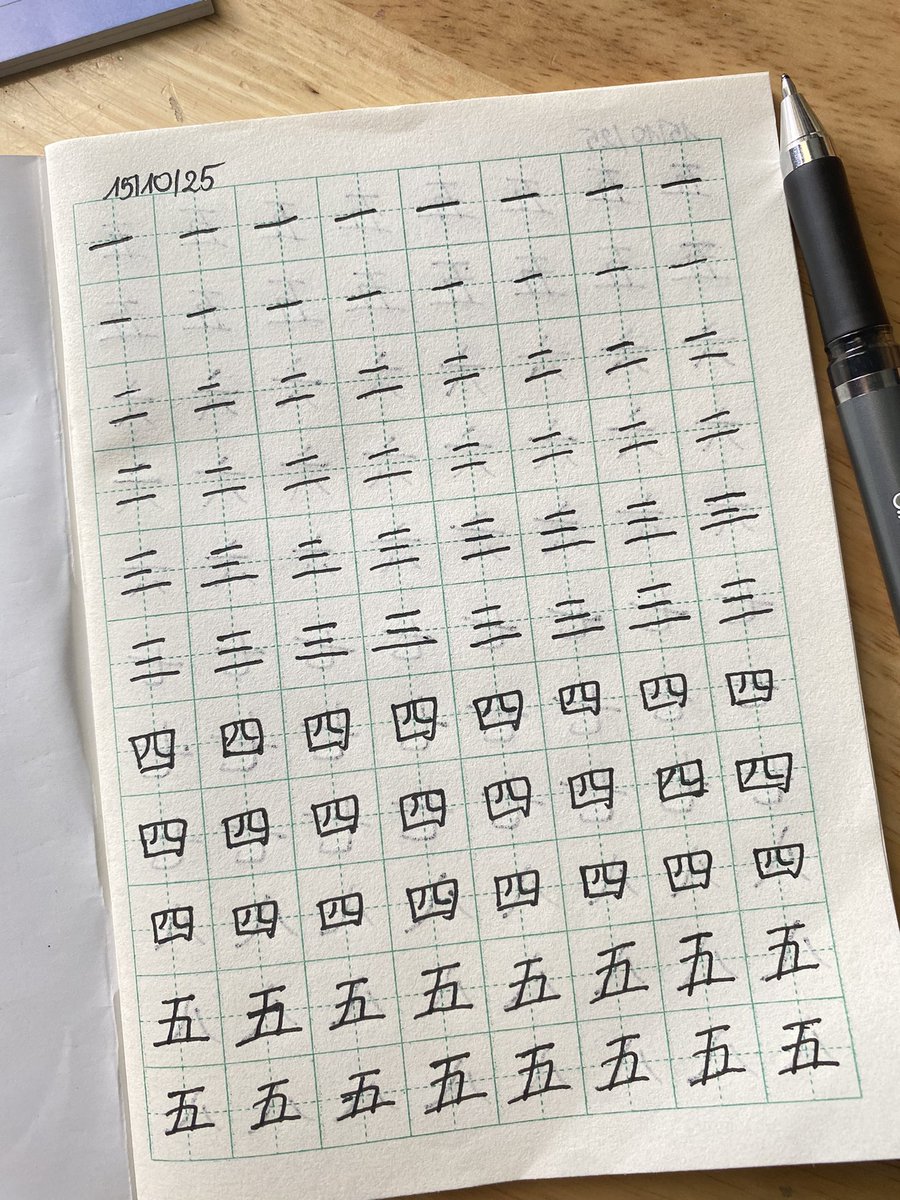 15/10/25
一 一 一 一 一 一 一 一
一 一 一 一 一 一 一 一
二 二 二 二 二 二 二 二
二 二 二 二 二 二 二 二
三 三 三 三 三 三 三 三
三 三 三 三 三 三 三 三
四 四 四 四 四 四 四 四
四 四 四 四 四 四 四 四
四 四 四 四 四 四 四 四
五 五 五 五 五 五 五 五
五 五 五 五 五 五 五 五